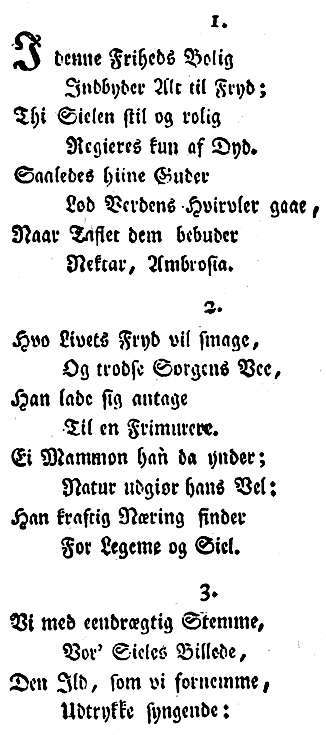 1.
I denne Friheds Bolig
Indbyder Alt til Fryd;
Thi Sielen stil og rolig
Regieres kun af Dyd.
Saaledes hiine Guder
Lod Verdens Hvirvler gaae,
Naar Taflet dem bebuder
Nektar, Ambrosia.
2.
Hvo Livets Fryd vil smage,
Og trodse Sorgens Vee,
Han lade sig antage
Til en Frimurere.
Ei Mammon han̄ da ynder;
Natur udgiør hans Vel:
Han kraftig Næring finder
For Legeme og Siel.
3.
Vi med eendrægtig Stemme,
Vor' Sieles Billede,
Den Ild, som vi fornemme,
Udtrykke syngende: